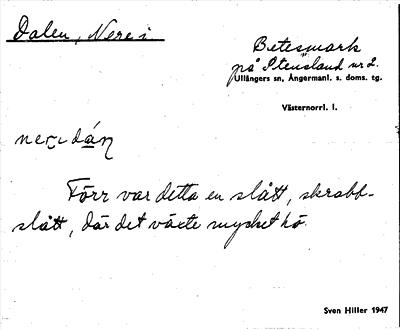 Dalen, Nere i
Betesmark
på Stensland nr 2.
Ullångers sn, Ångermanl. s. doms. tg.
Västernorrl. l.
Förr var detta en slått, skrabb-
slått, där det växte mycket hö.
Sven Hiller 1947